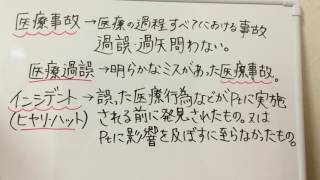 医療事故→医療の過程すべてにおける事故
過誤・過失問わない。
医療過誤→明らかなミスがあった医療事故。
インシデント→誤った医療行為などがPtに実施
(ヒヤリ・ハット) される前に発見されたもの。又は
Ptに影響を及ぼすに至らなかったもの。